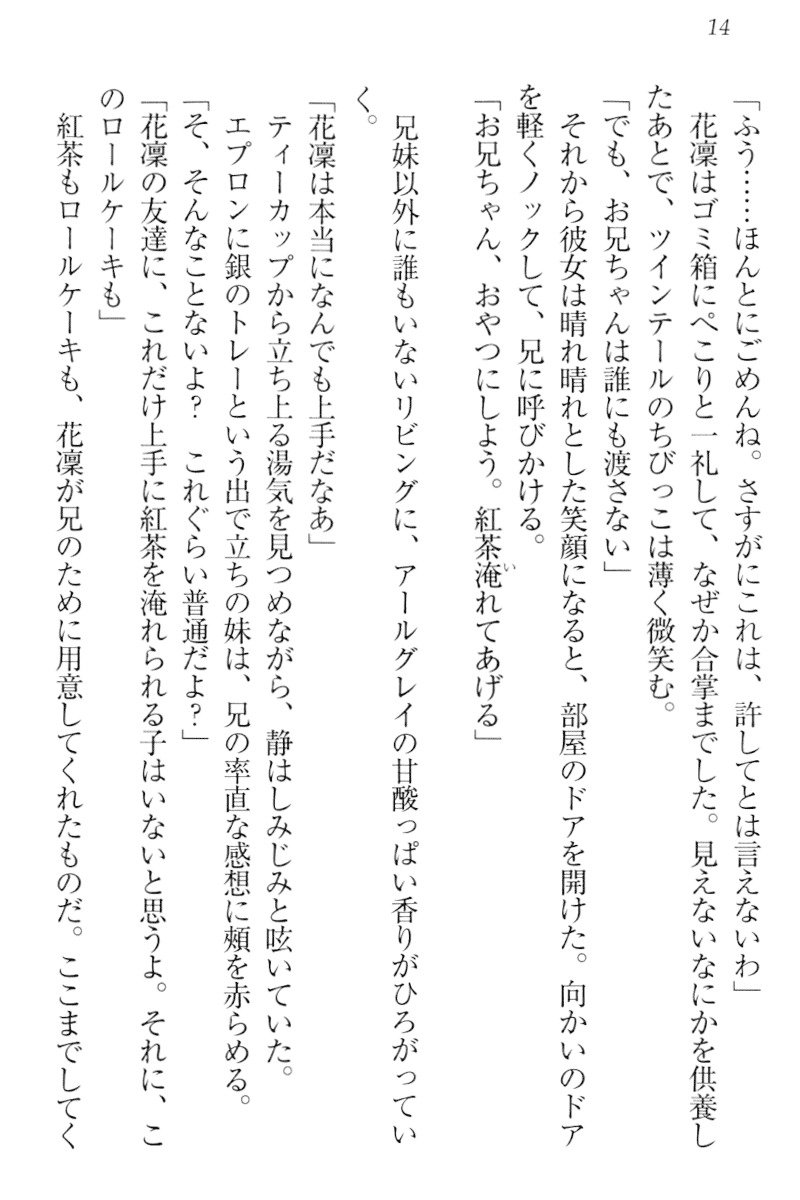 14
「ふう……ほんとにごめんね。さすがにこれは、許してとは言えないわ」
　花凛はゴミ箱にぺこりと一礼して、なぜか合掌までした。見えないなにかを供養し
たあとで、ツインテールのちびっこは薄く微笑む。
「でも、お兄ちゃんは誰にも渡さない」
　それから彼女は晴れ晴れとした笑顔になると、部屋のドアを開けた。向かいのドア
を軽くノックして、兄に呼びかける。
「お兄ちゃん、おやつにしよう。紅茶淹れてあげる」
　兄妹以外に誰もいないリビングに、アールグレイの甘酸っぱい香りがひろがってい
く。
「花凛は本当になんでも上手だなあ」
　ティーカップから立ち上る湯気を見つめながら、静はしみじみと呟いていた。
　エプロンに銀のトレーという出で立ちの妹は、兄の率直な感想に頰を赤らめる。
「そ、そんなことないよ？　これぐらい普通だよ？」
「花凛の友達に、これだけ上手に紅茶を淹れられる子はいないと思うよ。それに、こ
のロールケーキも」
　紅茶もロールケーキも、花凛が兄のために用意してくれたものだ。ここまでしてく